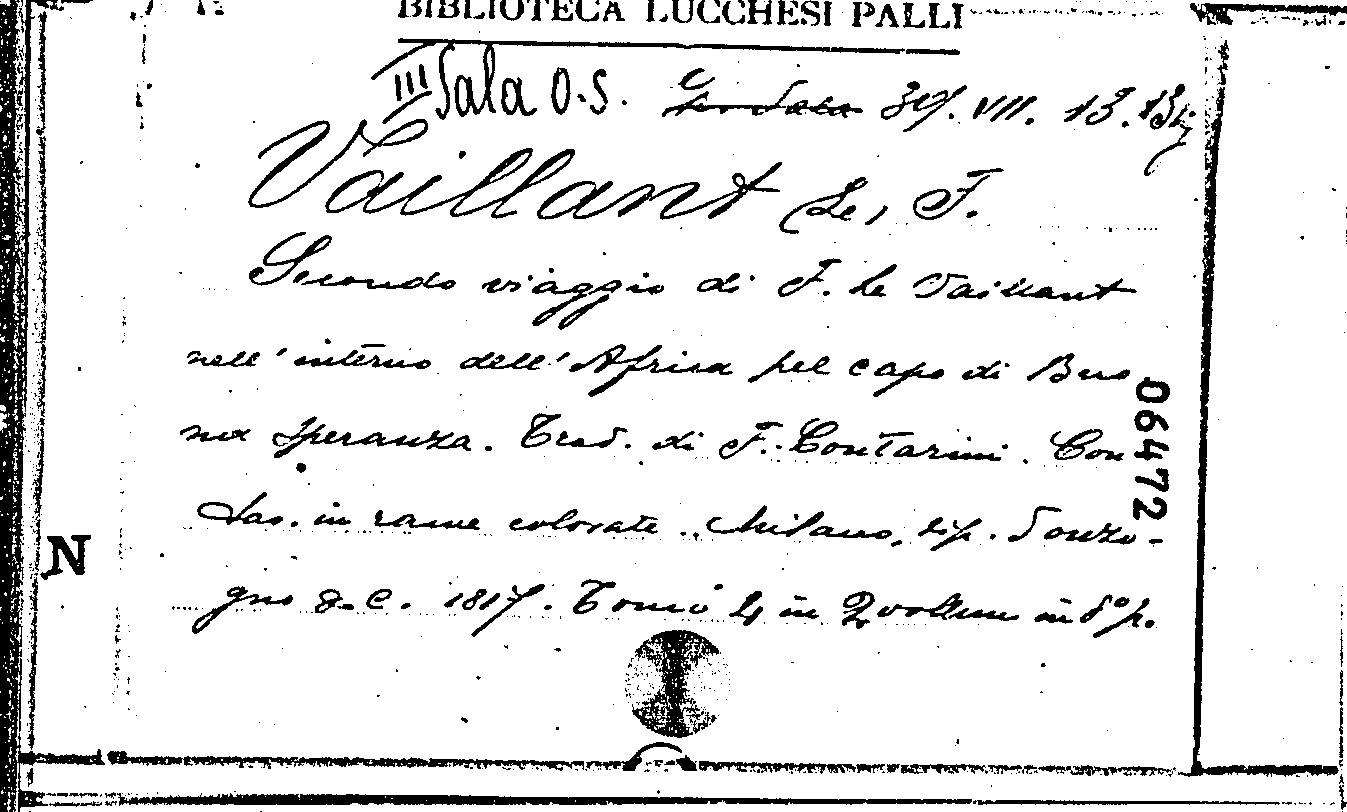 BIBLIOTECA LUCCHESI PALLI
III Sala O.S. VII. 13.
Vaillant (Le) F.
Secondo viaggio di F. Le Vaillant
nell'interno dell'Africa pel capo di Buo
na Speranza. Trad. di F. Contarini. Con
tav. in rame colorate. Milano, tip. Sonzo-
gno & C. 1817. Tomi 4 in 2 vollum in 8º p.
06472
N